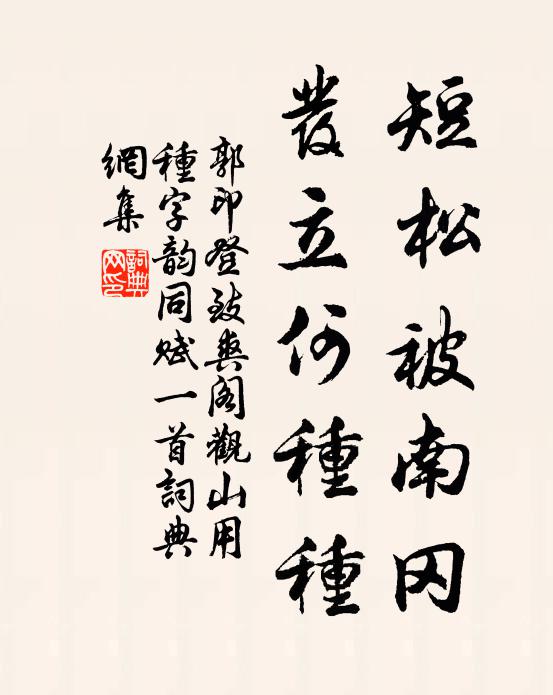 短松被南冈
發立何種種
郭印登致爽阁觀山用
種字韵同赋一首詞典
網集
詞典網印